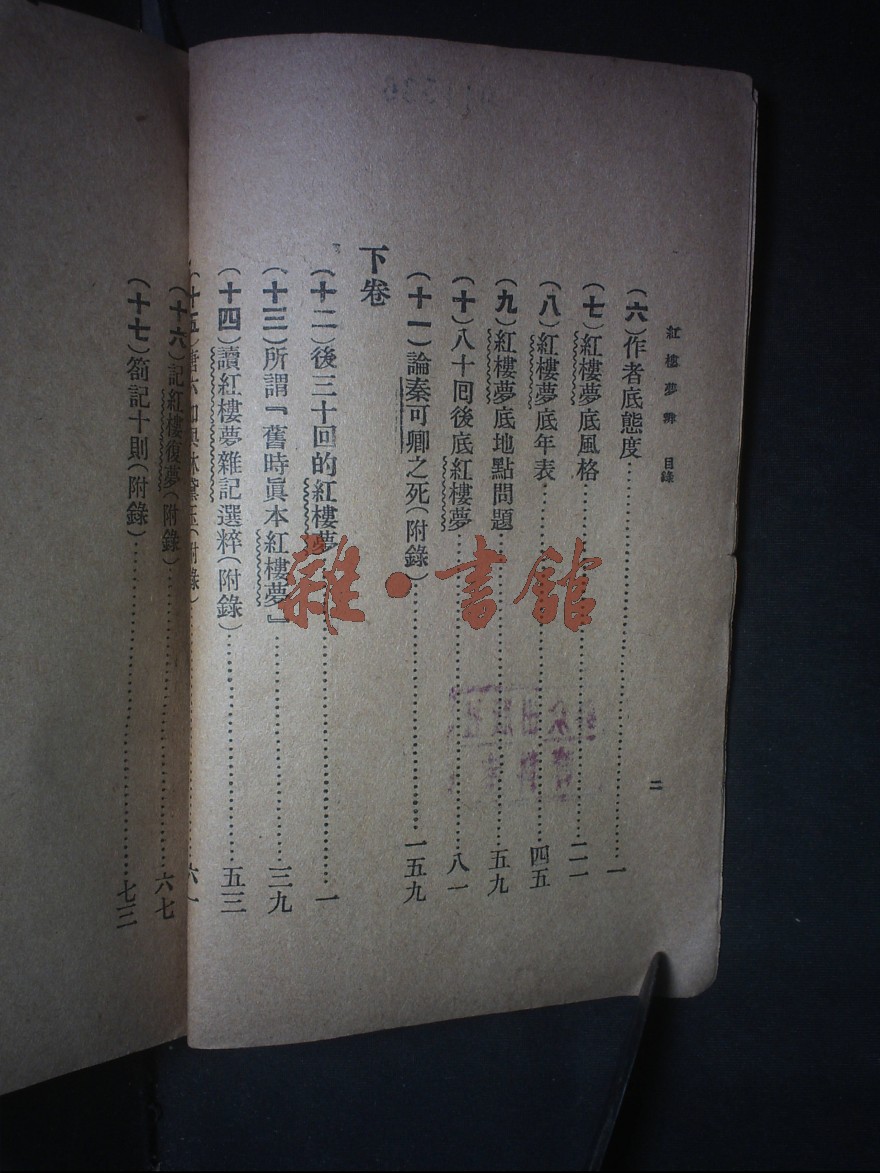 紅樓夢辨 目錄
二
(六)作者底態度……一
(七)紅樓夢底風格……二一
(八)紅樓夢底年表……四五
(九)紅樓夢底地點問題……五九
(十)八十回後底紅樓夢……八一
(十一)論秦可卿之死(附錄)……一五九
下卷
(十二)後三十回的紅樓夢……一
(十三)所謂『舊時眞本紅樓夢』……三九
(十四)讀紅樓夢雜記選粹(附錄)……五三
(十五)唐六如與林黛玉(附錄)……六一
(十六)記紅樓復夢(附錄)……六七
(十七)箚記十則(附錄)……七三
雜·書館